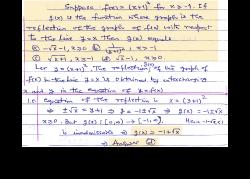 Suppose f(x) = (x+1)² for x ≥ -1. If
g(x) is the function whose graph is the
reflection of the graph of f(x) with respect
to the line y=x then g(x) equals
a) -√x-1, x≥0 b) 1/(x+1)², x>-1
c) √x+1, x≥-1 d) √x-1, x≥0.
Let y=(x+1)². The reflection of the graph of
f(x) in the line y=x is obtained by interchanging
x and y in the equation of y=f(x)
i.e. equation of the reflection is x=(y+1)²
⇒ ±√x = y+1 ⇒ y = -1±√x ⇒ g(x) = -1±√x
x≥0. But g(x): [0,∞) → [-1,∞). Hence -1-√x
is inadmissible ⇒ g(x) = -1+√x
⇒ Answer d)